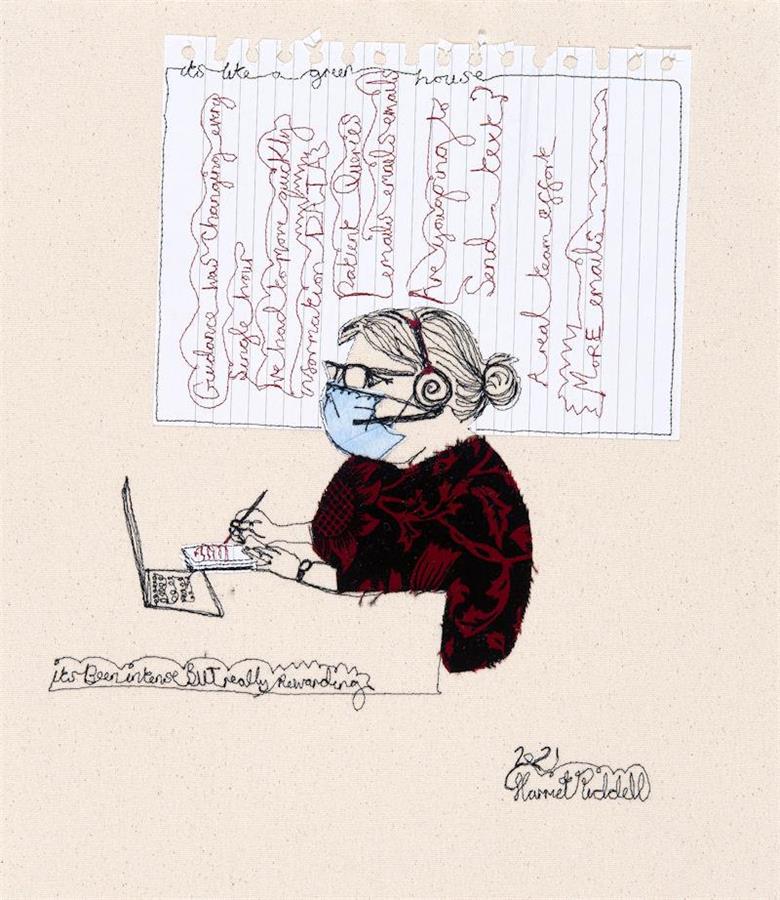 its like a green house
Guidance was changing every
single hour
We had to move quickly
information DATA
Patient Queries
emails emails emails
Are you going to
Send a text?
A real team effort
MORE emails
its Been intense BUT really Rewarding
2021
Harriet Riddell